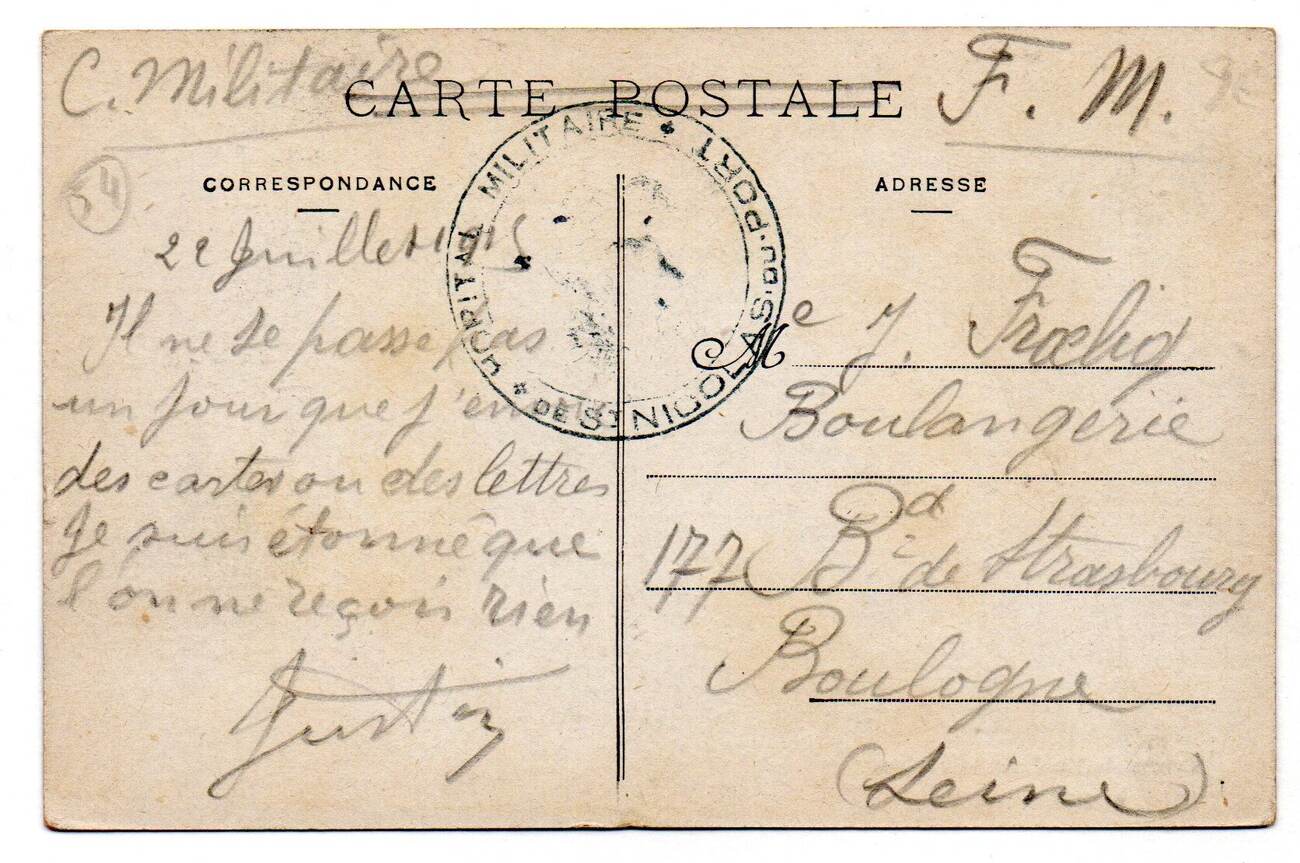 C. Militaire
CARTE POSTALE
F. M.
54
CORRESPONDANCE
ADRESSE
HOPITAL MILITAIRE * DE ST NICOLAS-DU-PORT *
22 Juillet 1915
Il ne se passe pas
un jour que j'envoie
des cartes ou des lettres
Je suis étonné que
l'on ne reçois rien
Justin
Me J. Frœlig
Boulangerie
177 Bd de Strasbourg
Boulogne
(Seine)